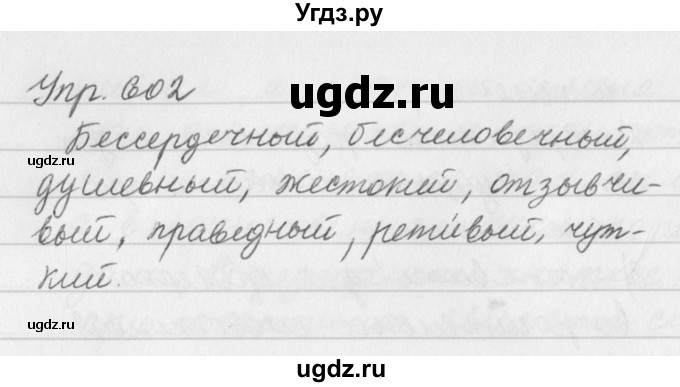 Угдз.ру
Упр. 602
ugdz.ru
Бессердечный, бесчеловечный,
ugdz.ru
душевный, жестокий, отзывчи-
вый, праведный, рети́вый, чут-
кий.
ugdz.ru
ugdz.ru
ugdz.ru